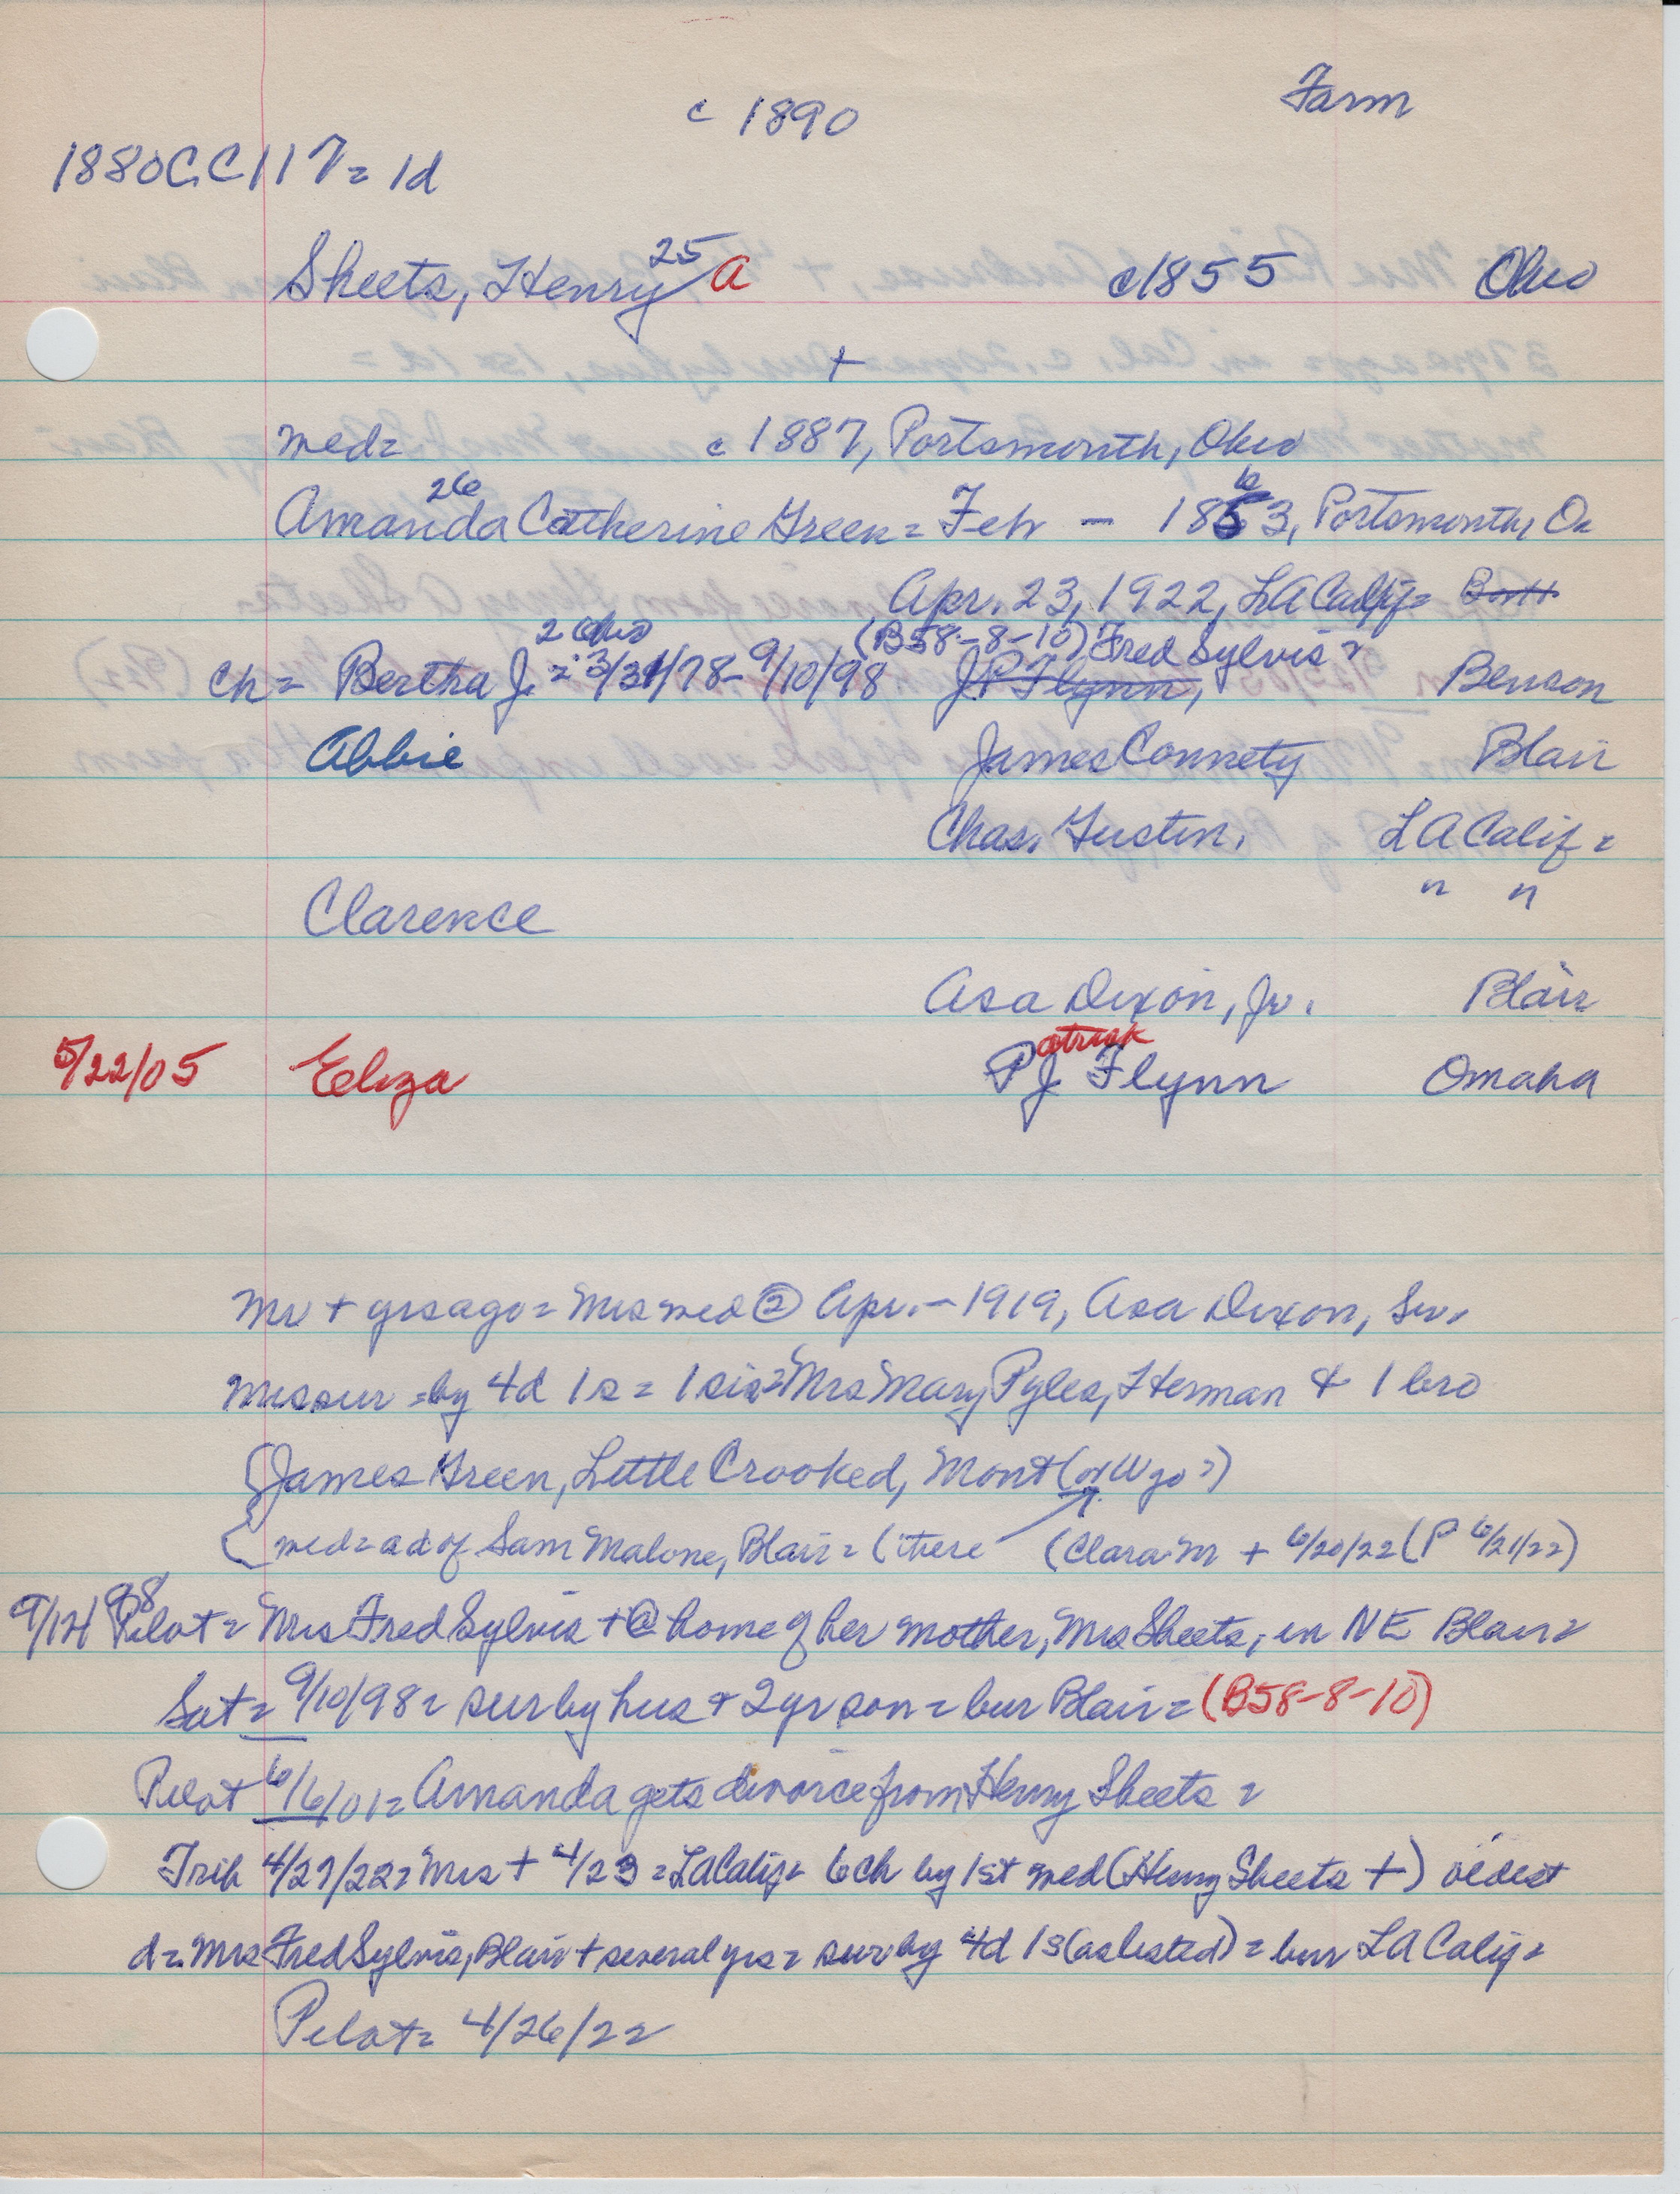 c 1890 Farm
1880CC117= 1d
Sheets, Henry 25 A c1855 Ohio
+
med= c 1887, Portsmouth, Ohio
26
Amanda Catherine Green= Feb - 1863, Portsmouth, O=
Apr. 23, 1922, LA Calif= Bott
2 Ohio (B58-8-10) Fred Sylvis=
ch= Bertha J. = 3/31/78- 9/10/98 JP Flynn, Benson
Abbie James Connety Blair
Chas. Gustin, LA Calif=
Clarence " "
Asa Dixon, Jr. Blair
5/22/05 Eliza Patrick J Flynn Omaha
Mr + yrs ago= Mrs med ② Apr. - 1919, Asa Dixon, Sr.
Mrs sur =by 4d 1s= 1 sis= Mrs Mary Pyles, Herman & 1 bro
{James Green, Little Crooked, Mont (or Wyo=)
{med= a d of Sam Malone, Blair= (there (Clara M + 6/20/22 (P 6/21/22)
9/14/98 Pilot= Mrs Fred Sylvis + @ home of her mother, Mrs Sheets, in NE Blair=
Sat= 9/10/98= sur by hus & 2 yr son= bur Blair= (B58-8-10)
Pilot 6/6/01= Amanda gets divorce from Henry Sheets=
Trib 4/27/22= Mrs + 4/23= LA Calif= 6ch by 1st med (Henry Sheets +) oldest
d= Mrs Fred Sylvis, Blair + several yrs= sur by 4d 1s (as listed)= bur LA Calif=
Pilot= 4/26/22